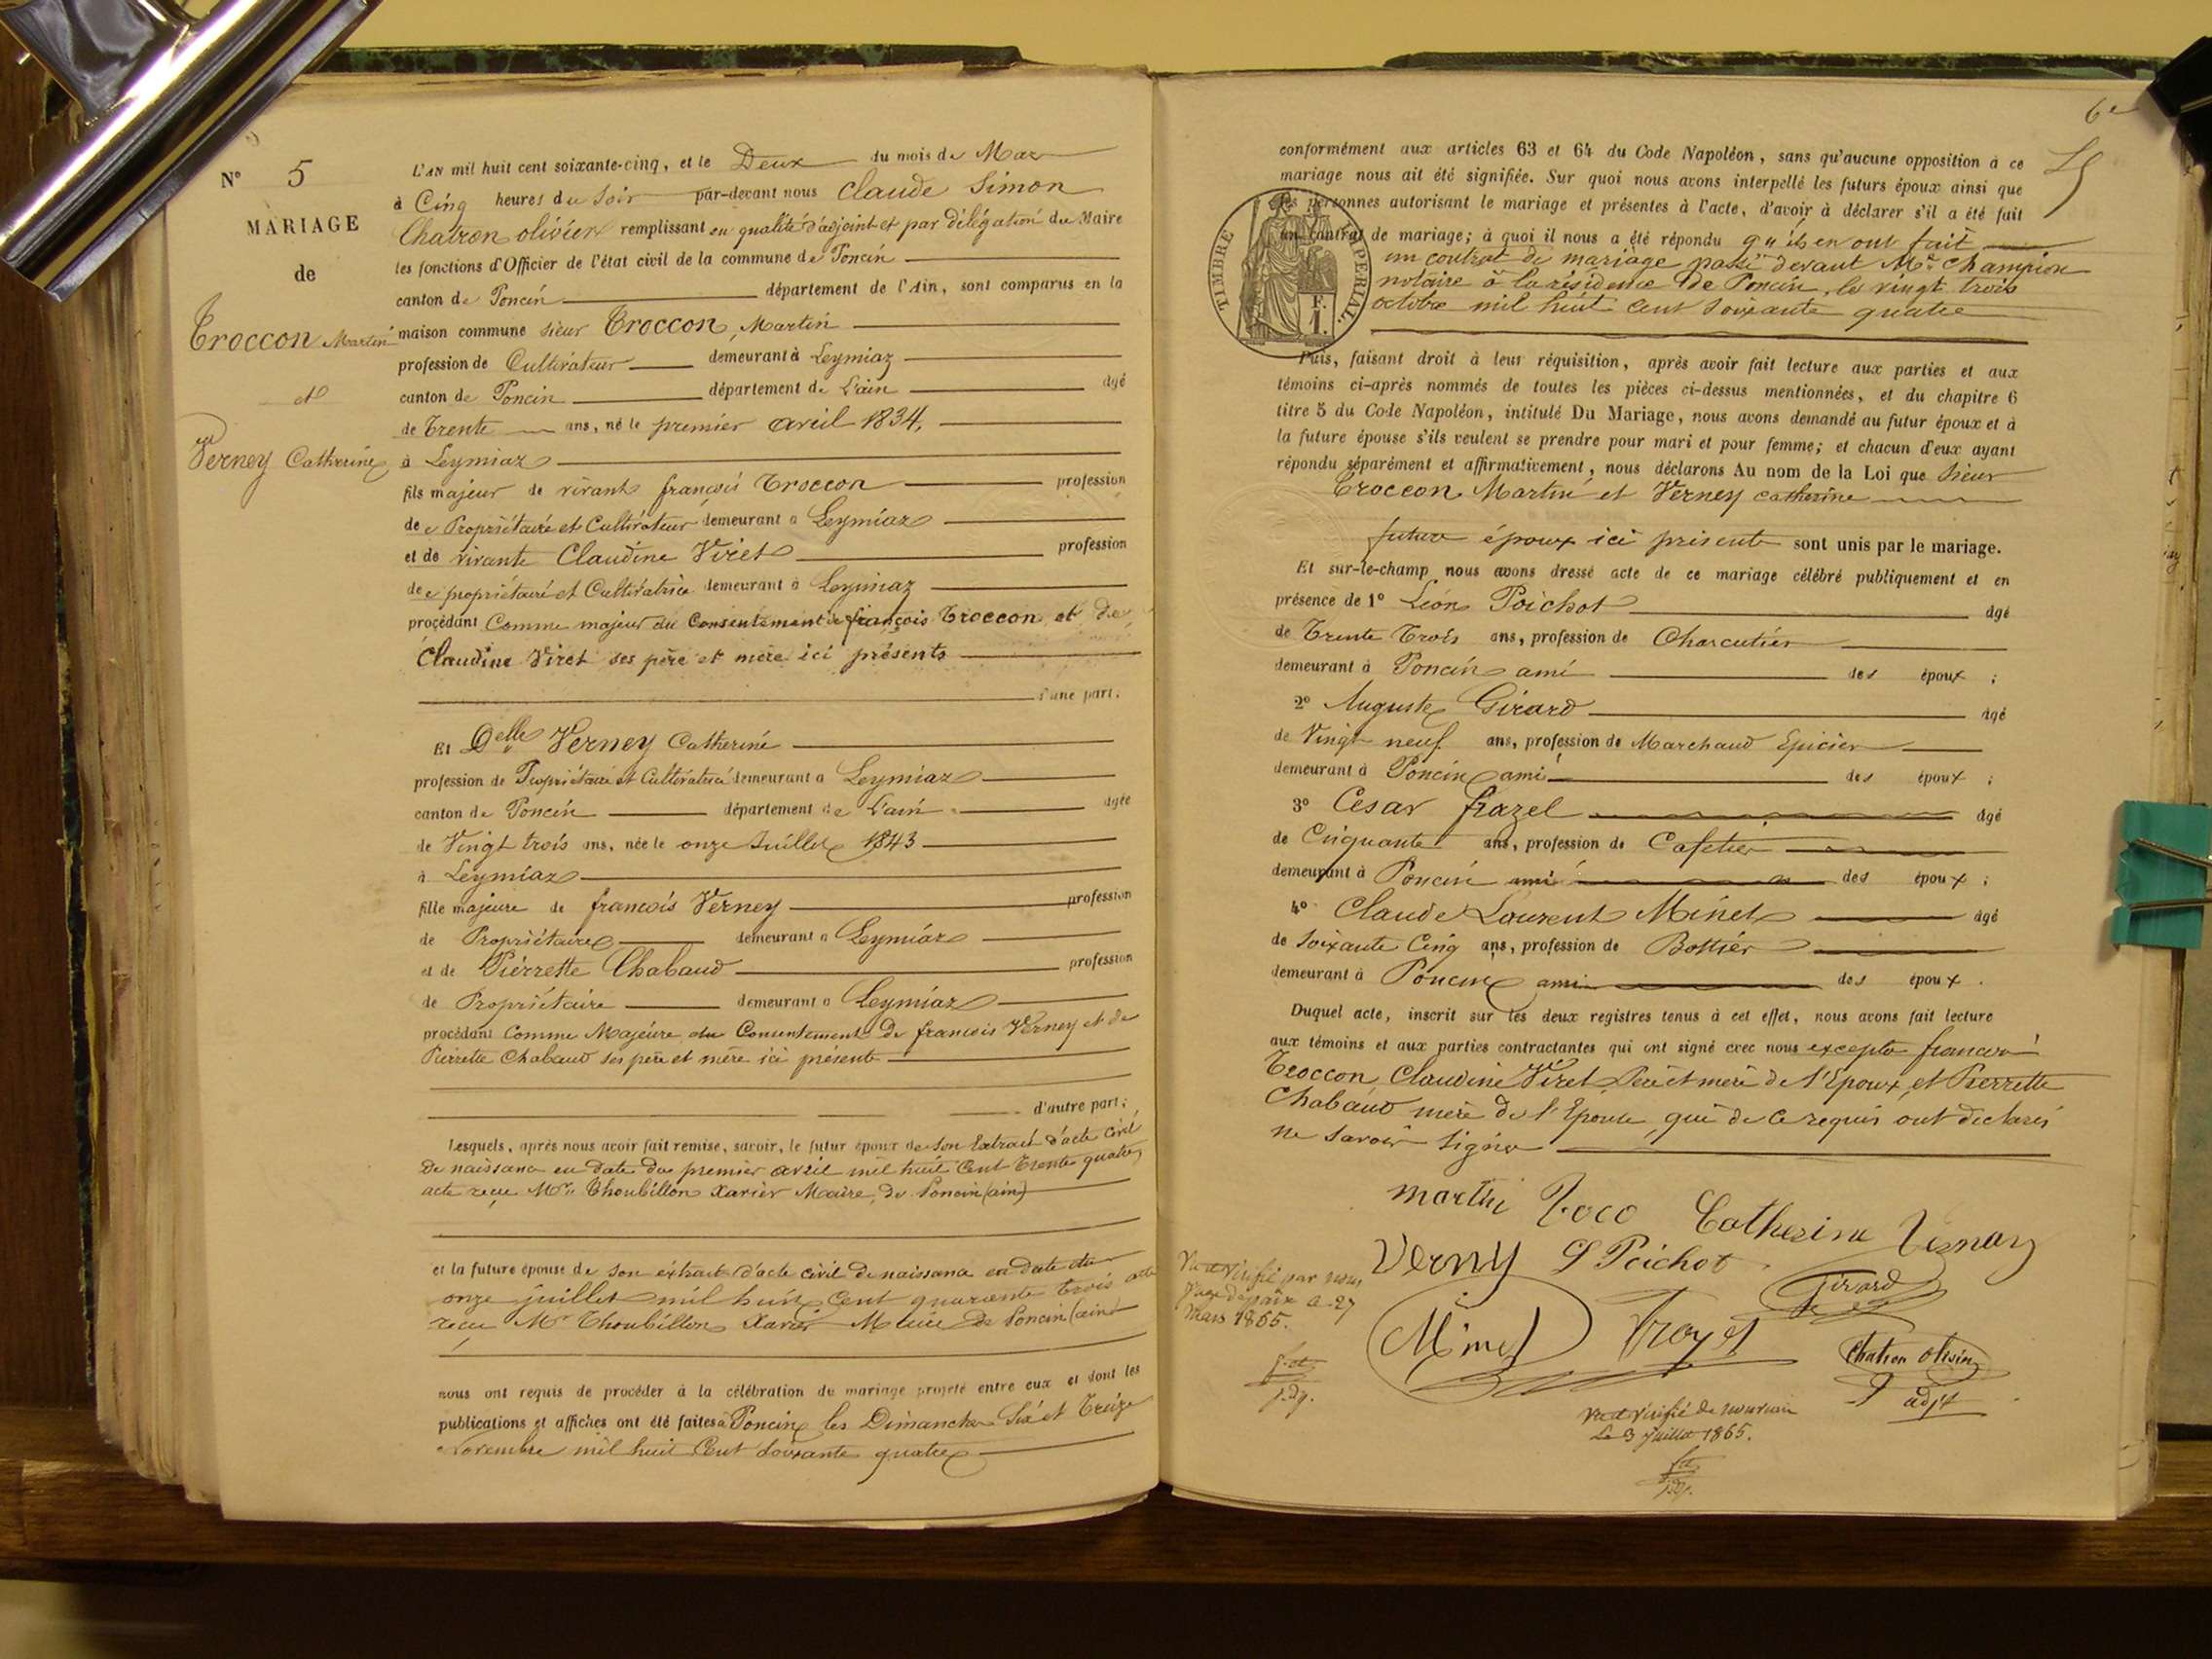 N° 5
MARIAGE
de
Troccon Martin
et
Verney Catherine
L'AN mil huit cent soixante-cinq, et le Deux du mois de Mars
à Cinq heures du Soir par-devant nous Claude Simon
Chatron olivier remplissant en qualité d'adjoint et par délégation du Maire
les fonctions d'Officier de l'état civil de la commune de Poncin
canton de Poncin département de l'Ain, sont comparus en la
maison commune sieur Troccon, Martin
profession de Cultivateur demeurant à Leymiaz
canton de Poncin département de L'ain âgé
de Trente ans, né le premier avril 1834,
à Leymiaz
fils majeur de vivant françois Troccon profession
de Propriétaire et Cultivateur demeurant à Leymiaz
et de vivante Claudine Viret profession
de propriétaire et Cultivatrice demeurant à Leymiaz
procédant Comme majeur du Consentement de françois Troccon et de
Claudine Viret ses père et mère ici présents
d'une part.
Et Delle Verney Catherine
profession de Propriétaire et Cultivatrice demeurant à Leymiaz
canton de Poncin département de L'ain âgée
de Vingt trois ans, née le onze Juillet 1843
à Leymiaz
fille majeure de francois Verney profession
de Propriétaire demeurant à Leymiaz
et de Pierrette Chabaud profession
de Propriétaire demeurant à Leymiaz
procédant Comme Majeure du Consentement De francois Verney et de
Pierrette Chabaud ses père et mère ici présents
d'autre part;
Lesquels, après nous avoir fait remise, savoir, le futur époux de son Extrait d'acte civil
de naissance en date du premier avril mil huit Cent Trente quatre,
acte reçu Mr Thoubillon Xavier Maire, de Poncin (ain)
et la future épouse de son extrait d'acte civil de naissance en date du
onze juillet mil huit Cent quarante trois acte
reçu Mr Thoubillon Xavier Maire de Poncin (ain)
nous ont requis de procéder à la célébration du mariage projeté entre eux et dont les
publications et affiches ont été faites à Poncin les Dimanches Six et Treize
Novembre mil huit Cent Soixante quatre
6e
conformément aux articles 63 et 64 du Code Napoléon, sans qu'aucune opposition à ce
mariage nous ait été signifiée. Sur quoi nous avons interpellé les futurs époux ainsi que
les personnes autorisant le mariage et présentes à l'acte, d'avoir à déclarer s'il a été fait
un contrat de mariage; à quoi il nous a été répondu qu'ils en ont fait
un contrat de mariage passé devant Me Champion
notaire à la résidence de Poncin, le vingt trois
octobre mil huit cent soixante quatre
TIMBRE IMPERIAL.
F.
1.
Puis, faisant droit à leur réquisition, après avoir fait lecture aux parties et aux
témoins ci-après nommés de toutes les pièces ci-dessus mentionnées, et du chapitre 6
titre 5 du Code Napoléon, intitulé Du Mariage, nous avons demandé au futur époux et à
la future épouse s'ils veulent se prendre pour mari et pour femme; et chacun d'eux ayant
répondu séparément et affirmativement, nous déclarons Au nom de la Loi que Sieur
Troccon Martin et Verney catherine
futurs époux ici présents sont unis par le mariage.
Et sur-le-champ nous avons dressé acte de ce mariage célébré publiquement et en
présence de 1° Léon Poichot âgé
de Trente Trois ans, profession de Charcutier
demeurant à Poncin ami des époux;
2° Auguste Girard âgé
de Vingt neuf ans, profession de Marchand Epicier
demeurant à Poncin ami des époux;
3° Cesar frazel âgé
de Cinquante ans, profession de Cafetier
demeurant à Poncin ami des époux;
4° Claude Laurent Minet âgé
de Soixante Cinq ans, profession de Bottier
demeurant à Poncin ami des époux.
Duquel acte, inscrit sur les deux registres tenus à cet effet, nous avons fait lecture
aux témoins et aux parties contractantes qui ont signé avec nous excepté francois
Troccon, Claudine Viret Père et mère de l'Epoux, et Pierrette
Chabaud mère de l'Epouse, qui de ce requis ont déclarés
ne savoir signer
martin Catherine Vernay
Verny L Poichot
Girard
Minet
Chatron olivier
adjt
Vu et Vérifié par nous
Juge de paix a 27
Mars 1865.
Vu et Vérifié de nouveau
Le 3 Juillet 1865.